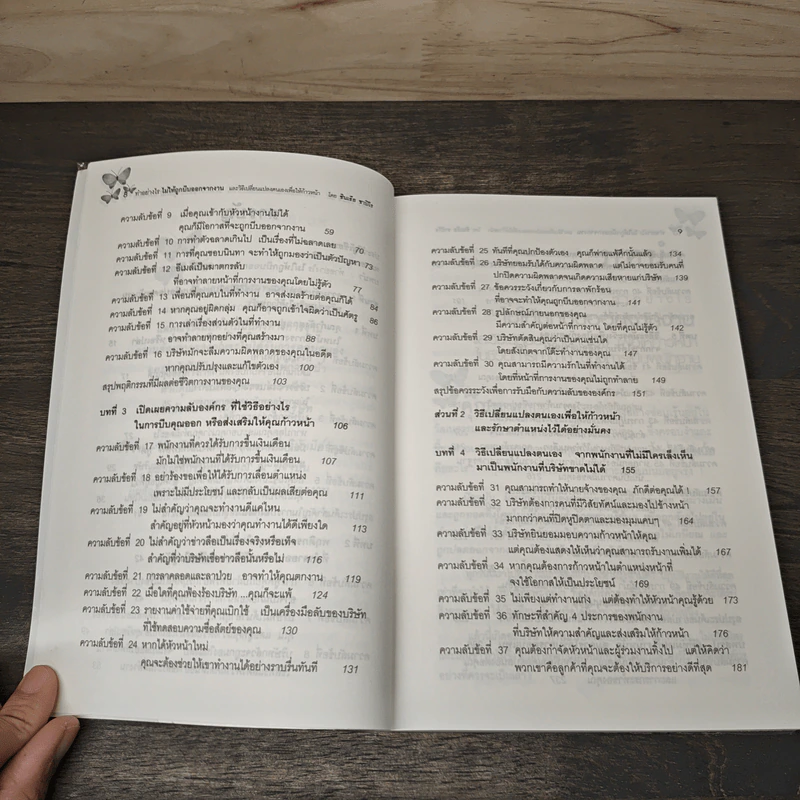 8 ทำอย่างไร ไม่ให้ถูกบีบออกจากงาน และวิธีเปลี่ยนแปลงตนเองเพื่อให้ก้าวหน้า โดย ซินเธีย ชาปิโร
ความลับข้อที่ 9 เมื่อคุณเข้ากับหัวหน้างานไม่ได้
คุณก็มีโอกาสที่จะถูกบีบออกจากงาน 59
ความลับข้อที่ 10 การทำตัวฉลาดเกินไป เป็นเรื่องที่ไม่ฉลาดเลย 70
ความลับข้อที่ 11 การที่คุณชอบนินทา จะทำให้ถูกมองว่าเป็นตัวปัญหา 73
ความลับข้อที่ 12 อีเมล์เป็นฆาตกรลับ
ที่อาจทำลายหน้าที่การงานของคุณโดยไม่รู้ตัว 77
ความลับข้อที่ 13 เพื่อนที่คุณคบในที่ทำงาน อาจส่งผลร้ายต่อคุณก็ได้ 84
ความลับข้อที่ 14 หากคุณอยู่ผิดกลุ่ม คุณก็อาจถูกเข้าใจผิดว่าเป็นศัตรู 86
ความลับข้อที่ 15 การเล่าเรื่องส่วนตัวในที่ทำงาน
อาจทำลายทุกอย่างที่คุณสร้างมา 88
ความลับข้อที่ 16 บริษัทมักจะลืมความผิดพลาดของคุณในอดีต
หากคุณปรับปรุงและแก้ไขตัวเอง 100
สรุปพฤติกรรมที่มีผลต่อชีวิตการงานของคุณ 103
บทที่ 3 เปิดเผยความลับองค์กร ที่ใช้วิธีอย่างไร
ในการบีบคุณออก หรือส่งเสริมให้คุณก้าวหน้า 106
ความลับข้อที่ 17 พนักงานที่ควรได้รับการขึ้นเงินเดือน
มักไม่ใช่พนักงานที่ได้รับการขึ้นเงินเดือน 107
ความลับข้อที่ 18 อย่าร้องขอเพื่อให้ได้รับการเลื่อนตำแหน่ง
เพราะไม่มีประโยชน์ และกลับเป็นผลเสียต่อคุณ 111
ความลับข้อที่ 19 ไม่สำคัญว่าคุณจะทำงานดีแค่ไหน
สำคัญอยู่ที่หัวหน้ามองว่าคุณทำงานได้ดีเพียงใด 113
ความลับข้อที่ 20 ไม่สำคัญว่าข่าวลือเป็นเรื่องจริงหรือเท็จ
สำคัญที่ว่าบริษัทเชื่อข่าวลือนั้นหรือไม่ 116
ความลับข้อที่ 21 การลาคลอดและลาป่วย อาจทำให้คุณตกงาน 119
ความลับข้อที่ 22 เมื่อใดที่คุณฟ้องร้องบริษัท ...คุณก็จะแพ้ 124
ความลับข้อที่ 23 รายงานค่าใช้จ่ายที่คุณเบิกใช้ เป็นเครื่องมือลับของบริษัท
ที่ใช้ทดสอบความซื่อสัตย์ของคุณ 130
ความลับข้อที่ 24 หากได้หัวหน้าใหม่
คุณจะต้องช่วยให้เขาทำงานได้อย่างราบรื่นทันที 131
9
ความลับข้อที่ 25 ทันทีที่คุณปกป้องตัวเอง คุณก็พ่ายแพ้ศึกนั้นแล้ว 134
ความลับข้อที่ 26 บริษัทยอมรับได้กับความผิดพลาด แต่ไม่อาจยอมรับคนที่
ปกปิดความผิดพลาดจนเกิดความเสียหายแก่บริษัท 139
ความลับข้อที่ 27 ข้อควรระวังเกี่ยวกับการลาพักร้อน
ที่อาจจะทำให้คุณถูกบีบออกจากงาน 141
ความลับข้อที่ 28 รูปลักษณ์ภายนอกของคุณ
มีความสำคัญต่อหน้าที่การงาน โดยที่คุณไม่รู้ตัว 142
ความลับข้อที่ 29 บริษัทตัดสินคุณว่าเป็นคนเช่นใด
โดยสังเกตจากโต๊ะทำงานของคุณ 147
ความลับข้อที่ 30 คุณสามารถมีความรักในที่ทำงานได้
โดยที่หน้าที่การงานของคุณไม่ถูกทำลาย 149
สรุปข้อควรระวังเพื่อการรับมือกับความลับขององค์กร 151
ส่วนที่ 2 วิธีเปลี่ยนแปลงตนเองเพื่อให้ก้าวหน้า
และรักษาตำแหน่งไว้ได้อย่างมั่นคง
บทที่ 4 วิธีเปลี่ยนแปลงตนเอง จากพนักงานที่ไม่มีใครเล็งเห็น
มาเป็นพนักงานที่บริษัทขาดไม่ได้ 155
ความลับข้อที่ 31 คุณสามารถทำให้นายจ้างของคุณ ภักดีต่อคุณได้ ! 157
ความลับข้อที่ 32 บริษัทต้องการคนที่มีวิสัยทัศน์และมองไปข้างหน้า
มากกว่าคนที่ปิดหูปิดตาและมองมุมแคบๆ 164
ความลับข้อที่ 33 บริษัทยินยอมมอบความก้าวหน้าให้คุณ
แต่คุณต้องแสดงให้เห็นว่าคุณสามารถรับงานเพิ่มได้ 167
ความลับข้อที่ 34 หากคุณต้องการก้าวหน้าในตำแหน่งหน้าที่
จงใช้โอกาสให้เป็นประโยชน์ 169
ความลับข้อที่ 35 ไม่เพียงแต่ทำงานเก่ง แต่ต้องทำให้หัวหน้าคุณรู้ด้วย 173
ความลับข้อที่ 36 ทักษะที่สำคัญ 4 ประการของพนักงาน
ที่บริษัทให้ความสำคัญและส่งเสริมให้ก้าวหน้า 176
ความลับข้อที่ 37 คุณต้องกำจัดหัวหน้าและผู้ร่วมงานทิ้งไป แต่ให้คิดว่า
พวกเขาคือลูกค้าที่คุณจะต้องให้บริการอย่างดีที่สุด 181